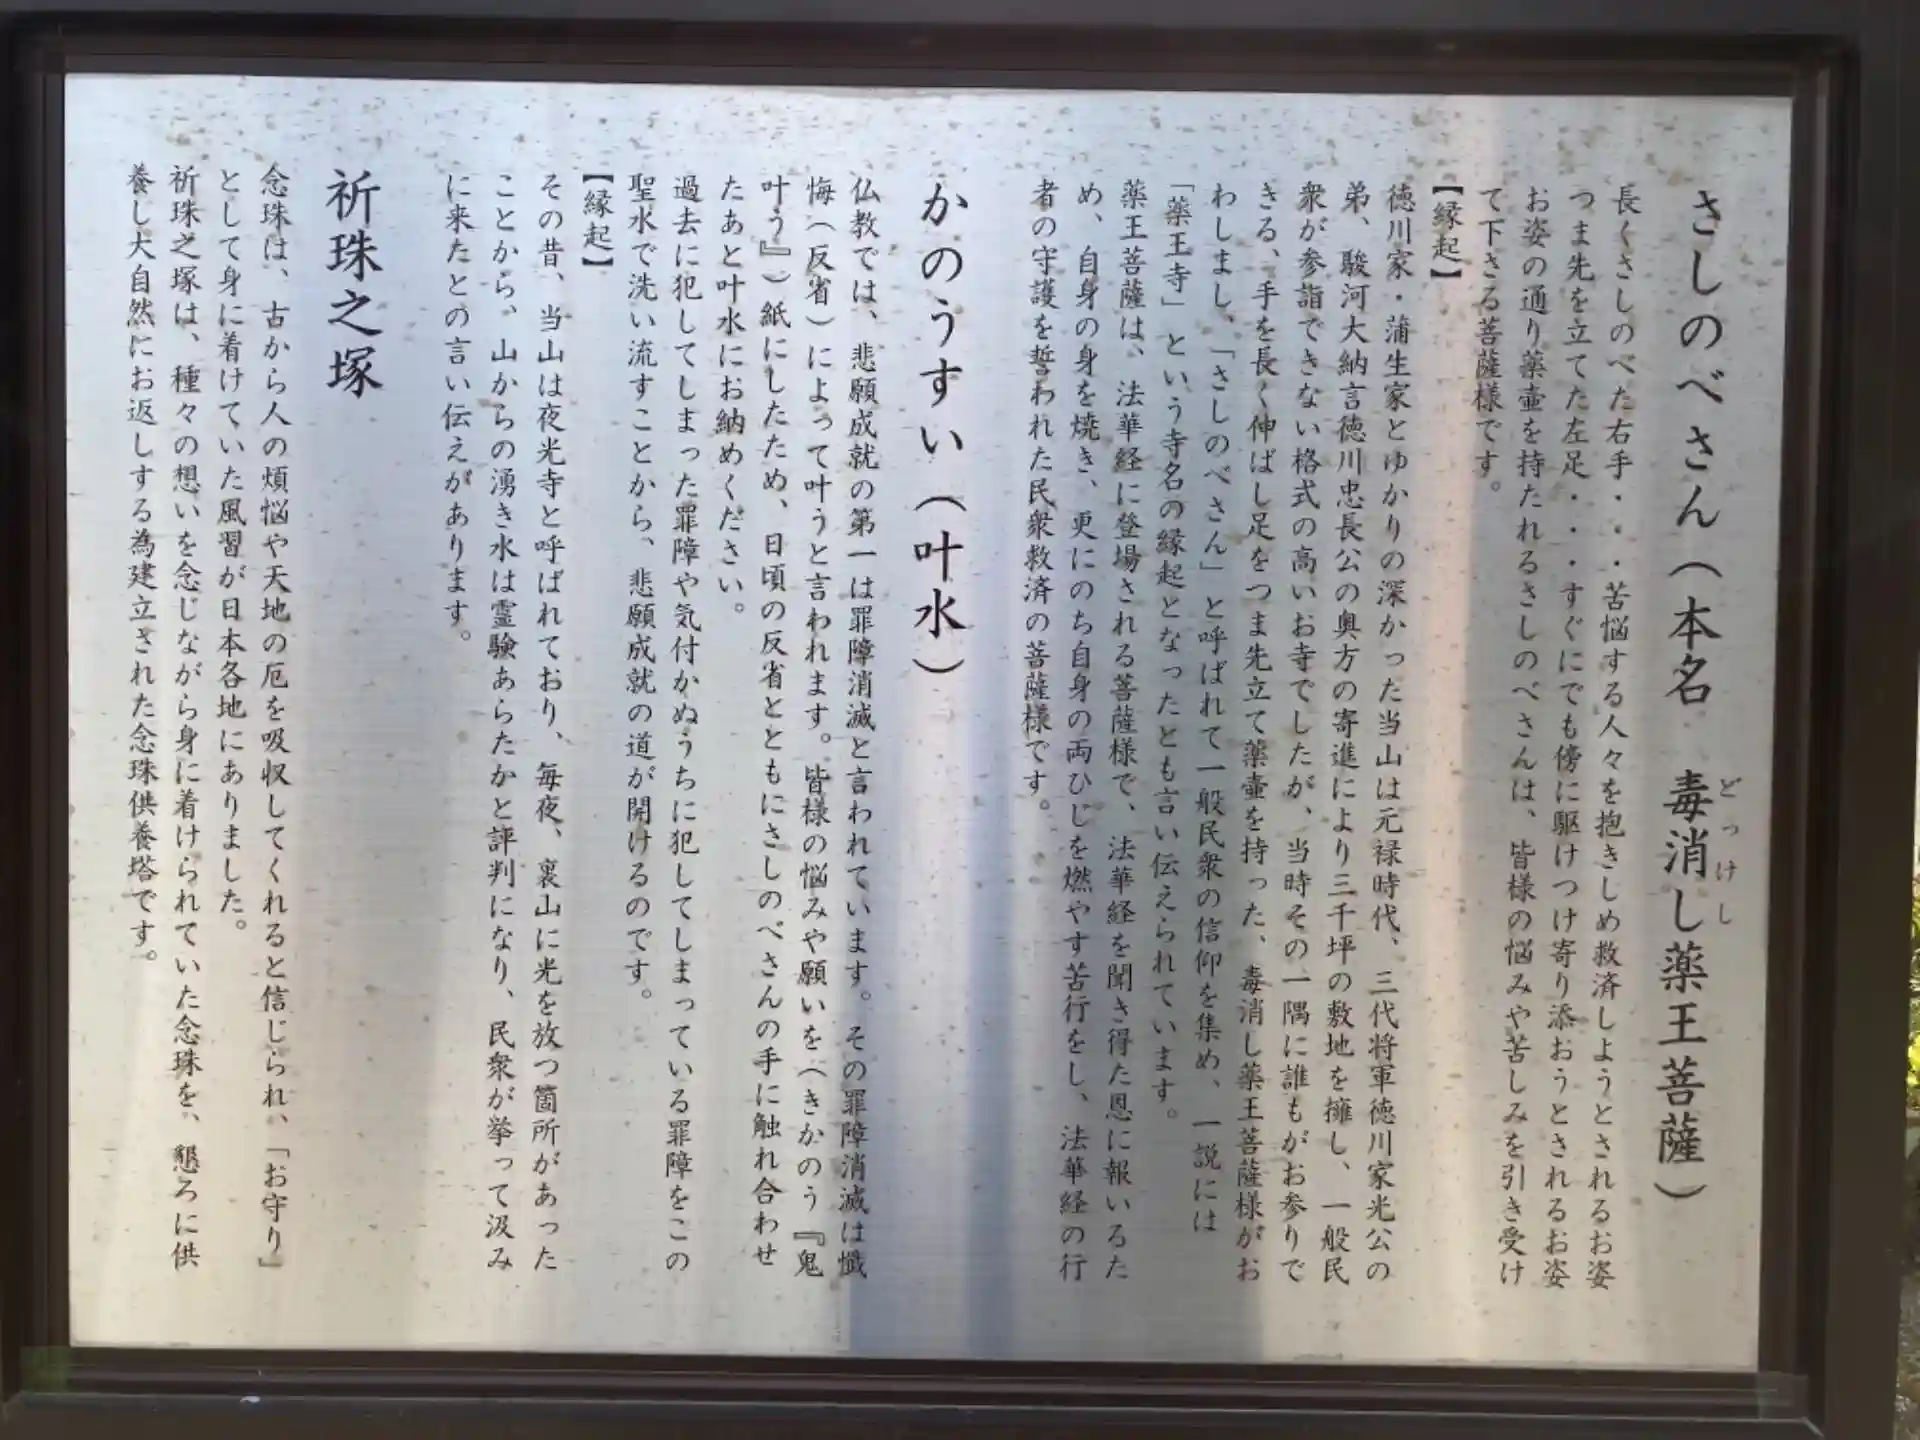 さしのべさん（本名　毒消し薬王菩薩）
どっけし
長くさしのべた右手・・・苦悩する人々を抱きしめ救済しようとされるお姿
つま先を立てた左足・・・すぐにでも傍に駆けつけ寄り添おうとされるお姿
お姿の通り薬壷を持たれるさしのべさんは、皆様の悩みや苦しみを引き受け
て下さる菩薩様です。
【縁起】
徳川家・蒲生家とゆかりの深かった当山は元禄時代、三代将軍徳川家光公の
弟、駿河大納言徳川忠長公の奥方の寄進により三千坪の敷地を擁し、一般民
衆が参詣できない格式の高いお寺でしたが、当時その一隅に誰もがお参りで
きる、手を長く伸ばし足をつま先立て薬壷を持った、毒消し薬王菩薩様がお
わしまし、「さしのべさん」と呼ばれて一般民衆の信仰を集め、一説には
「薬王寺」という寺名の縁起となったとも言い伝えられています。
薬王菩薩は、法華経に登場される菩薩様で、法華経を聞き得た恩に報いるた
め、自身の身を焼き、更にのち自身の両ひじを燃やす苦行をし、法華経の行
者の守護を誓われた民衆救済の菩薩様です。
かのうすい（叶水）
仏教では、悲願成就の第一は罪障消滅と言われています。その罪障消滅は懺
悔（反省）によって叶うと言われます。皆様の悩みや願いを（きかのう『鬼
叶う』）紙にしたため、日頃の反省とともにさしのべさんの手に触れ合わせ
たあと叶水にお納めください。
過去に犯してしまった罪障や気付かぬうちに犯してしまっている罪障をこの
聖水で洗い流すことから、悲願成就の道が開けるのです。
【縁起】
その昔、当山は夜光寺と呼ばれており、毎夜、裏山に光を放つ箇所があった
ことから、山からの湧き水は霊験あらたかと評判になり、民衆が挙って汲み
に来たとの言い伝えがあります。
祈珠之塚
念珠は、古から人の煩悩や天地の厄を吸収してくれると信じられ、「お守り」
として身に着けていた風習が日本各地にありました。
祈珠之塚は、種々の想いを念じながら身に着けられていた念珠を、懇ろに供
養し大自然にお返しする為建立された念珠供養塔です。